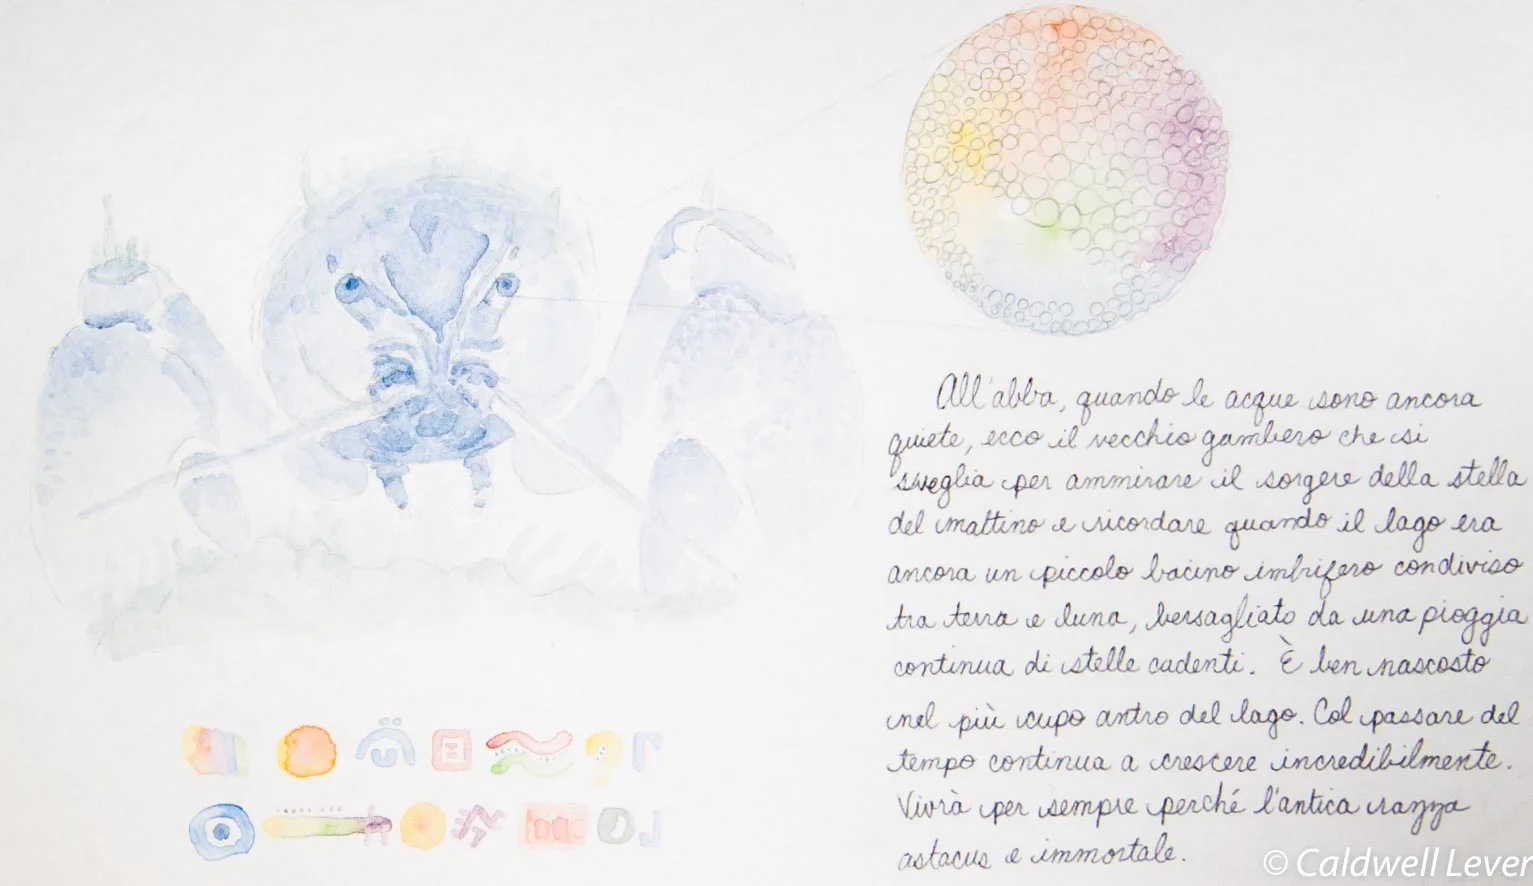 All'abba, quando le acque sono ancora
quiete, ecco il vecchio gambero che si
sveglia per ammirare il sorgere della stella
del mattino e ricordare quando il lago era
ancora un piccolo bacino imbrifero condiviso
tra terra e luna, bersagliato da una pioggia
continua di stelle cadenti. È ben nascosto
nel più cupo antro del lago. Col passare del
tempo continua a crescere incredibilmente.
Vivrà per sempre perché l'antica razza
astacus e immortale.
© Caldwell Lever